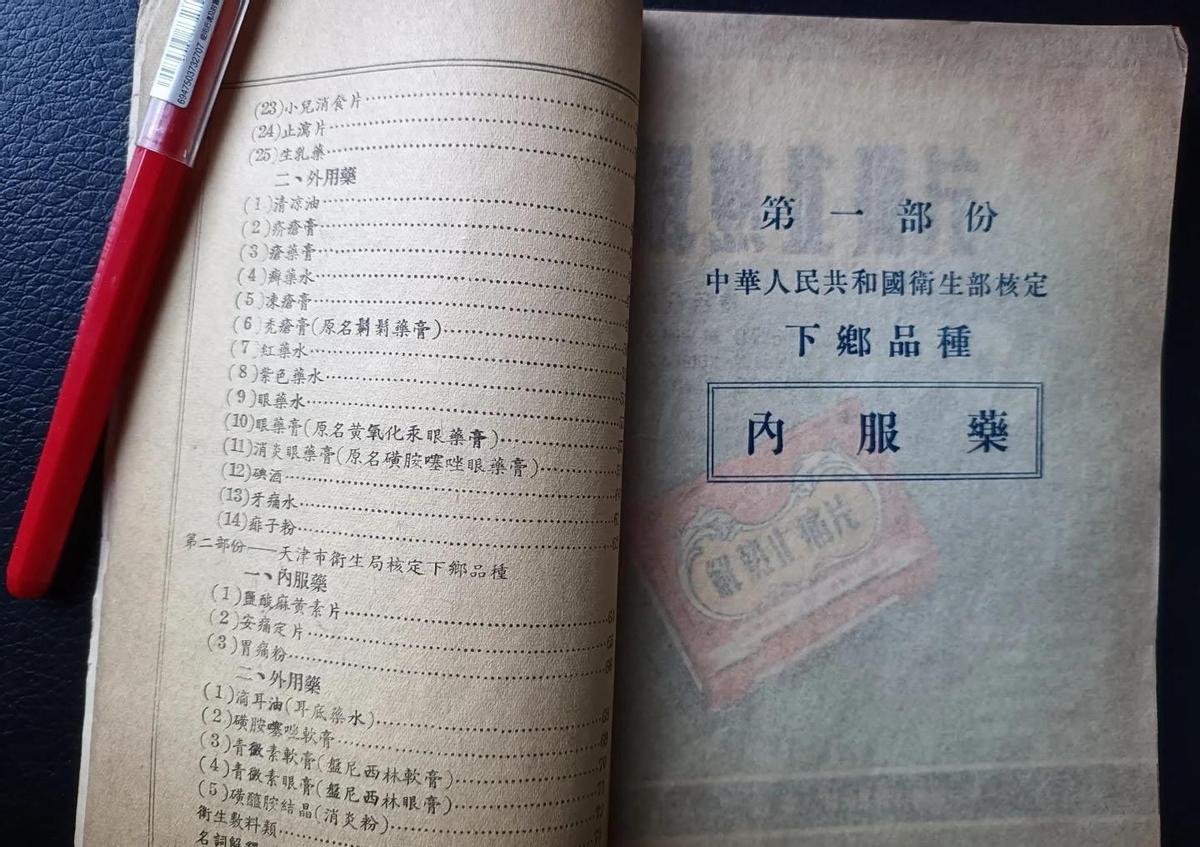 6947503732707
(23)小兒消食片
(24)止瀉片
(25)生乳藥
二、外用藥
(1)清涼油
(2)疥瘡膏
(3)瘡藥膏
(4)癬藥水
(5)凍瘡膏
(6)禿瘡膏(原名鬎鬁藥膏)
(7)紅藥水
(8)紫色藥水
(9)眼藥水
(10)眼藥膏(原名黃氧化汞眼藥膏)
(11)消炎眼藥膏(原名磺胺噻唑眼藥膏)
(12)碘酒
(13)牙痛水
(14)痱子粉
第二部份——天津市衛生局核定下鄉品種
一、內服藥
(1)鹽酸麻黃素片
(2)安痛定片
(3)胃痛粉
二、外用藥
(1)滴耳油(耳底藥水)
(2)磺胺噻唑軟膏
(3)青黴素軟膏(盤尼西林軟膏)
(4)青黴素眼膏(盤尼西林眼膏)
(5)磺醯胺結晶(消炎粉)
衛生敷料類
名詞解釋
第一部份
中華人民共和國衛生部核定
下鄉品種
內服藥
止痛片